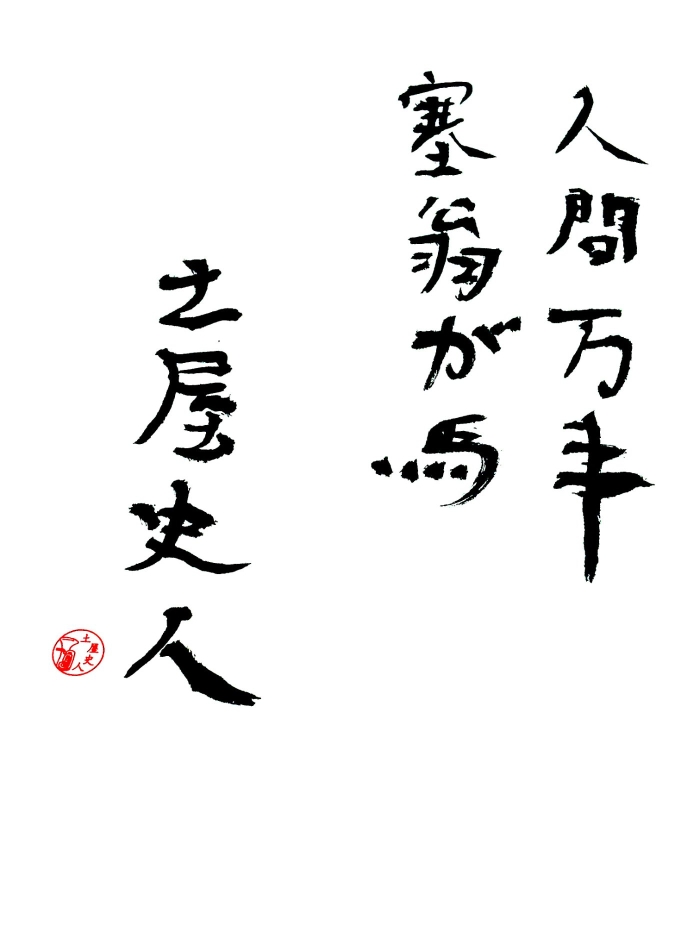 人間万事
塞翁が馬
土屋史人
土屋史人